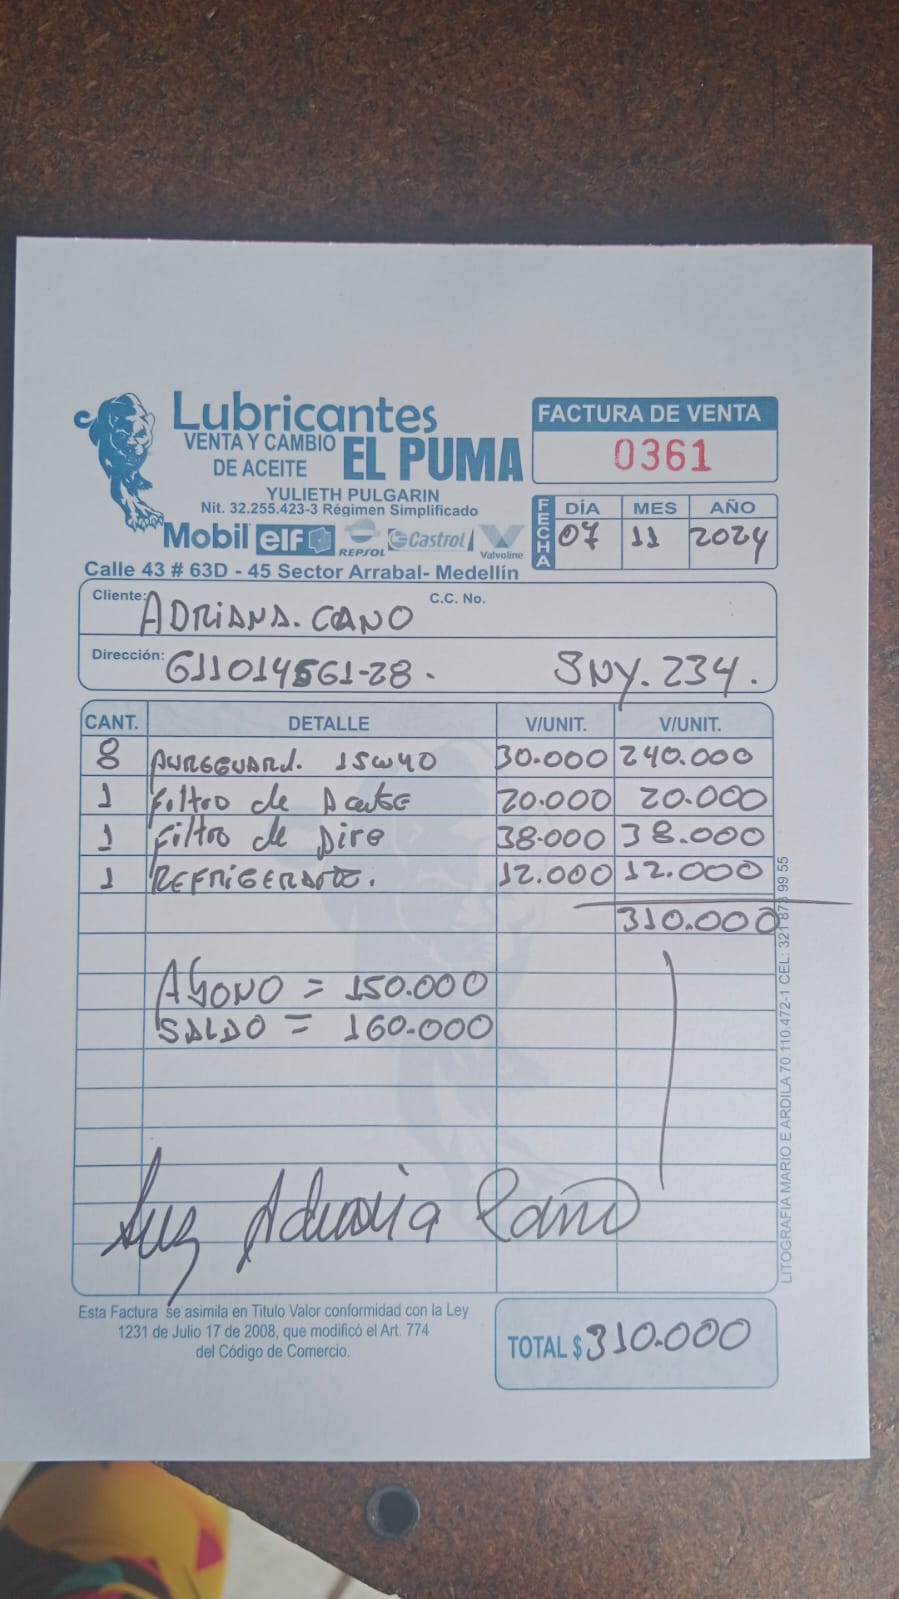 Lubricantes
VENTA Y CAMBIO
DE ACEITE EL PUMA
YULIETH PULGARIN
Nit. 32.255.423-3 Régimen Simplificado
Mobil elf REPSOL Castrol Valvoline
Calle 43 # 63D - 45 Sector Arrabal- Medellín
FACTURA DE VENTA
0361
FECHA DÍA MES AÑO
07 11 2024
Cliente: ADRIANA. CANO C.C. No.
Dirección: 611014561-28. SNY. 234.
CANT. DETALLE V/UNIT. V/UNIT.
8 15W40 30.000 240.000
1 Filtro de Aceite 20.000 20.000
1 Filtro de Aire 38.000 38.000
1 12.000 12.000
310.000
ABONO = 150.000
SALDO = 160.000
Luz Adriana Cano
Esta Factura se asimila en Titulo Valor conformidad con la Ley
1231 de Julio 17 de 2008, que modificó el Art. 774
del Código de Comercio.
TOTAL $ 310.000
LITOGRAFIA MARIO E ARDILA 70.110.472-1 CEL: 321 873 99 55